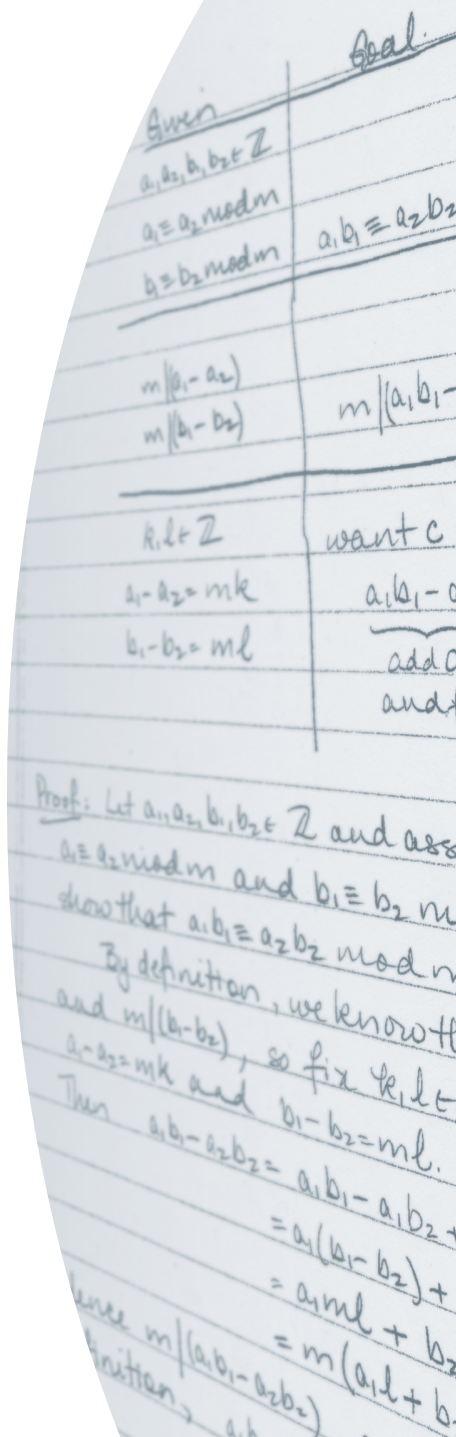 Goal.
Given
a₁,a₂,b₁,b₂ ∈ ℤ
a₁ ≡ a₂ mod m
b₁ ≡ b₂ mod m
a₁b₁ ≡ a₂b₂
m|(a₁-a₂)
m|(b₁-b₂)
m|(a₁b₁-
k,l ∈ ℤ
want c
a₁-a₂ = mk
a₁b₁-a
b₁-b₂ = ml
add
and
Proof: Let a₁,a₂,b₁,b₂ ∈ ℤ and ass
a₁ ≡ a₂ mod m and b₁ ≡ b₂ m
show that a₁b₁ ≡ a₂b₂ mod m
By definition, we know th
and m|(b₁-b₂), so fix k,l ∈
a₁-a₂=mk and b₁-b₂=ml.
Then a₁b₁-a₂b₂ = a₁b₁-a₁b₂ +
= a₁(b₁-b₂) +
= a₁ml + b₂
= m(a₁l + b
ence m|(a₁b₁-a₂b₂)
inition, a₁b